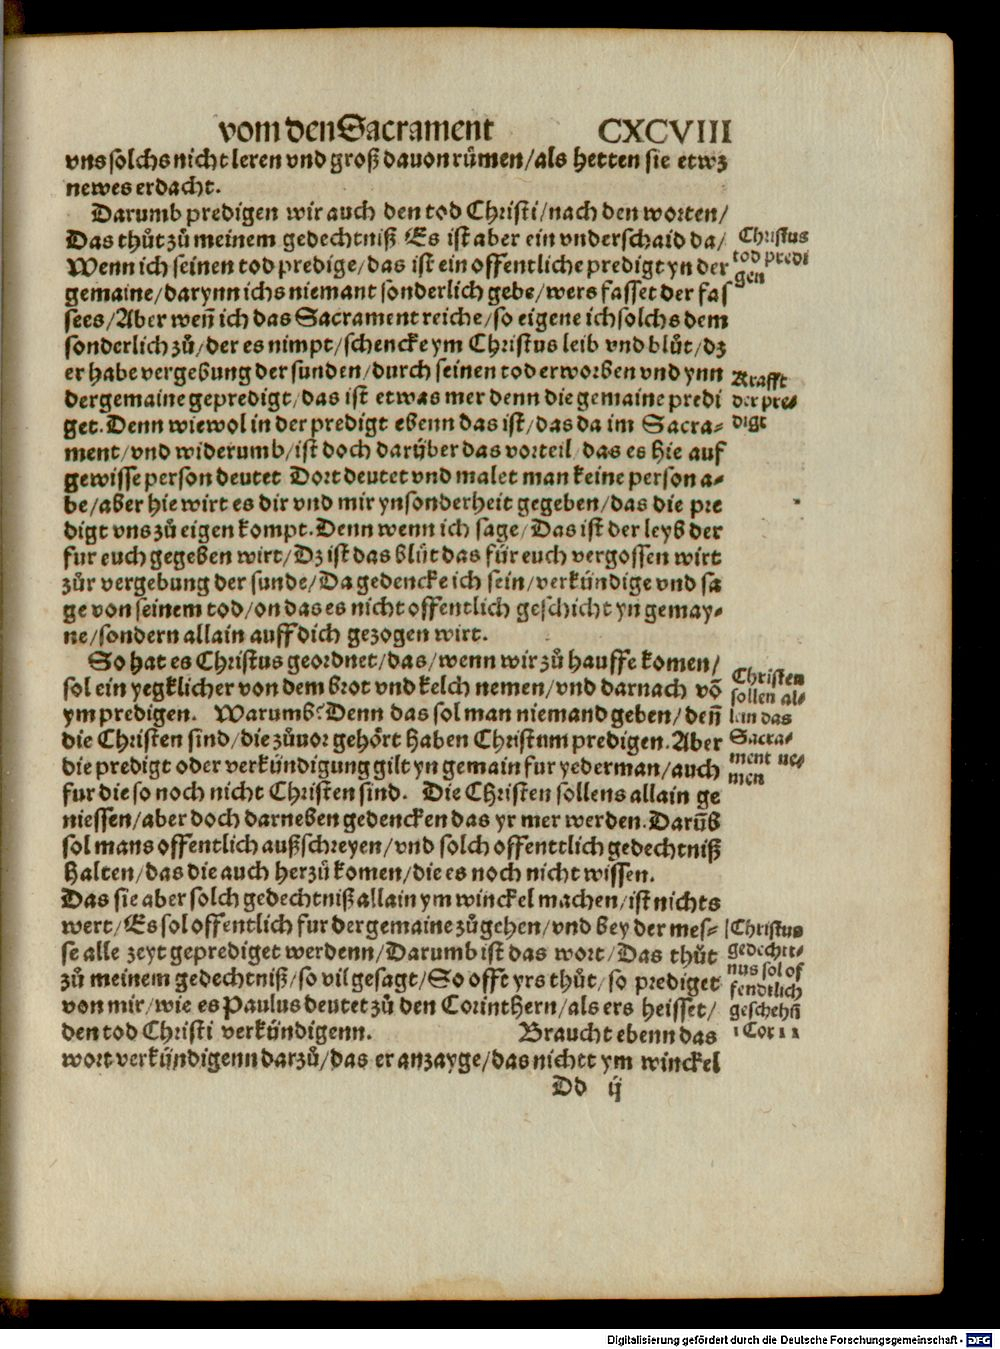 vom den Sacrament CXCVIII
vns solchs nicht leren vnd groß dauon rümen/als hetten sie etwz
newes erdacht.
Darumb predigen wir auch den tod Christi/nach den worten/
Das thůt zů meinem gedechtniß Es ist aber ein vnderschaid da/
Wenn ich seinen tod predige/das ist ein offentliche predigt yn der
gemaine/darynn ichs niemant sonderlich gebe/wers fasset der fas
sees/Aber weñ ich das Sacrament reiche/so eigene ich solchs dem
sonderlich zů/der es nimpt/schencke ym Christus leib vnd blůt/dz
er habe vergebung der sunden/durch seinen tod erworben vnd ynn
der gemaine gepredigt/das ist etwas mer denn die gemaine predi
get. Denn wiewol in der predigt ebenn das ist/das da im Sacra-
ment/vnd widerumb/ist doch darüber das vorteil/das es hie auf
gewisse person deutet Dort deutet vnd malet man keine person a-
be/aber hie wirt es dir vnd mir ynsonderheit gegeben/das die pre
digt vns zů eigen kompt. Denn wenn ich sage/Das ist der leyb der
fur euch gegeben wirt/Dz ist das blůt das für euch vergossen wirt
zůr vergebung der sunde/Da gedencke ich sein/verkündige vnd sa
ge von seinem tod/on das es nicht offentlich geschicht yn gemay-
ne/sondern allain auff dich gezogen wirt.
So hat es Christus geordnet/das/wenn wir zů hauffe komen/
sol ein yegklicher von dem brot vnd kelch nemen/vnd darnach võ
ym predigen. Warumb? Denn das sol man niemand geben/deñ
die Christen sind/die zůuor gehört haben Christum predigen. Aber
die predigt oder verkündigung gilt yn gemain fur yederman/auch
fur die so noch nicht Christen sind. Die Christen sollens allain ge
niessen/aber doch darneben gedencken das yr mer werden. Darũb
sol mans offentlich außschreyen/vnd solch offenttlich gedechtniß
halten/das die auch herzů komen/die es noch nicht wissen.
Das sie aber solch gedechtniß allain ym winckel machen/ist nichts
wert/Es sol offentlich fur der gemaine zůgehen/vnd bey der mes-
se alle zeyt geprediget werdenn/Darumb ist das wort/Das thůt
zů meinem gedechtniß/so vil gesagt/So offt yrs thůt/so prediget
von mir/wie es Paulus deutet zů den Corinthern/als ers heisset/
den tod Christi verkündigenn. Braucht ebenn das
wort verkündigenn darzů/das er anzayge/das nichtt ym winckel
Dd ij
Christus
tod predi
gen
Krafft
der pre-
digt
Christen
sollen al-
lain das
Sacra-
ment ne-
men
Christus
gedechtt-
nus sol of
fendtlich
geschehñ
1 Cor 11
Digitalisierung gefördert durch die Deutsche Forschungsgemeinschaft - DFG